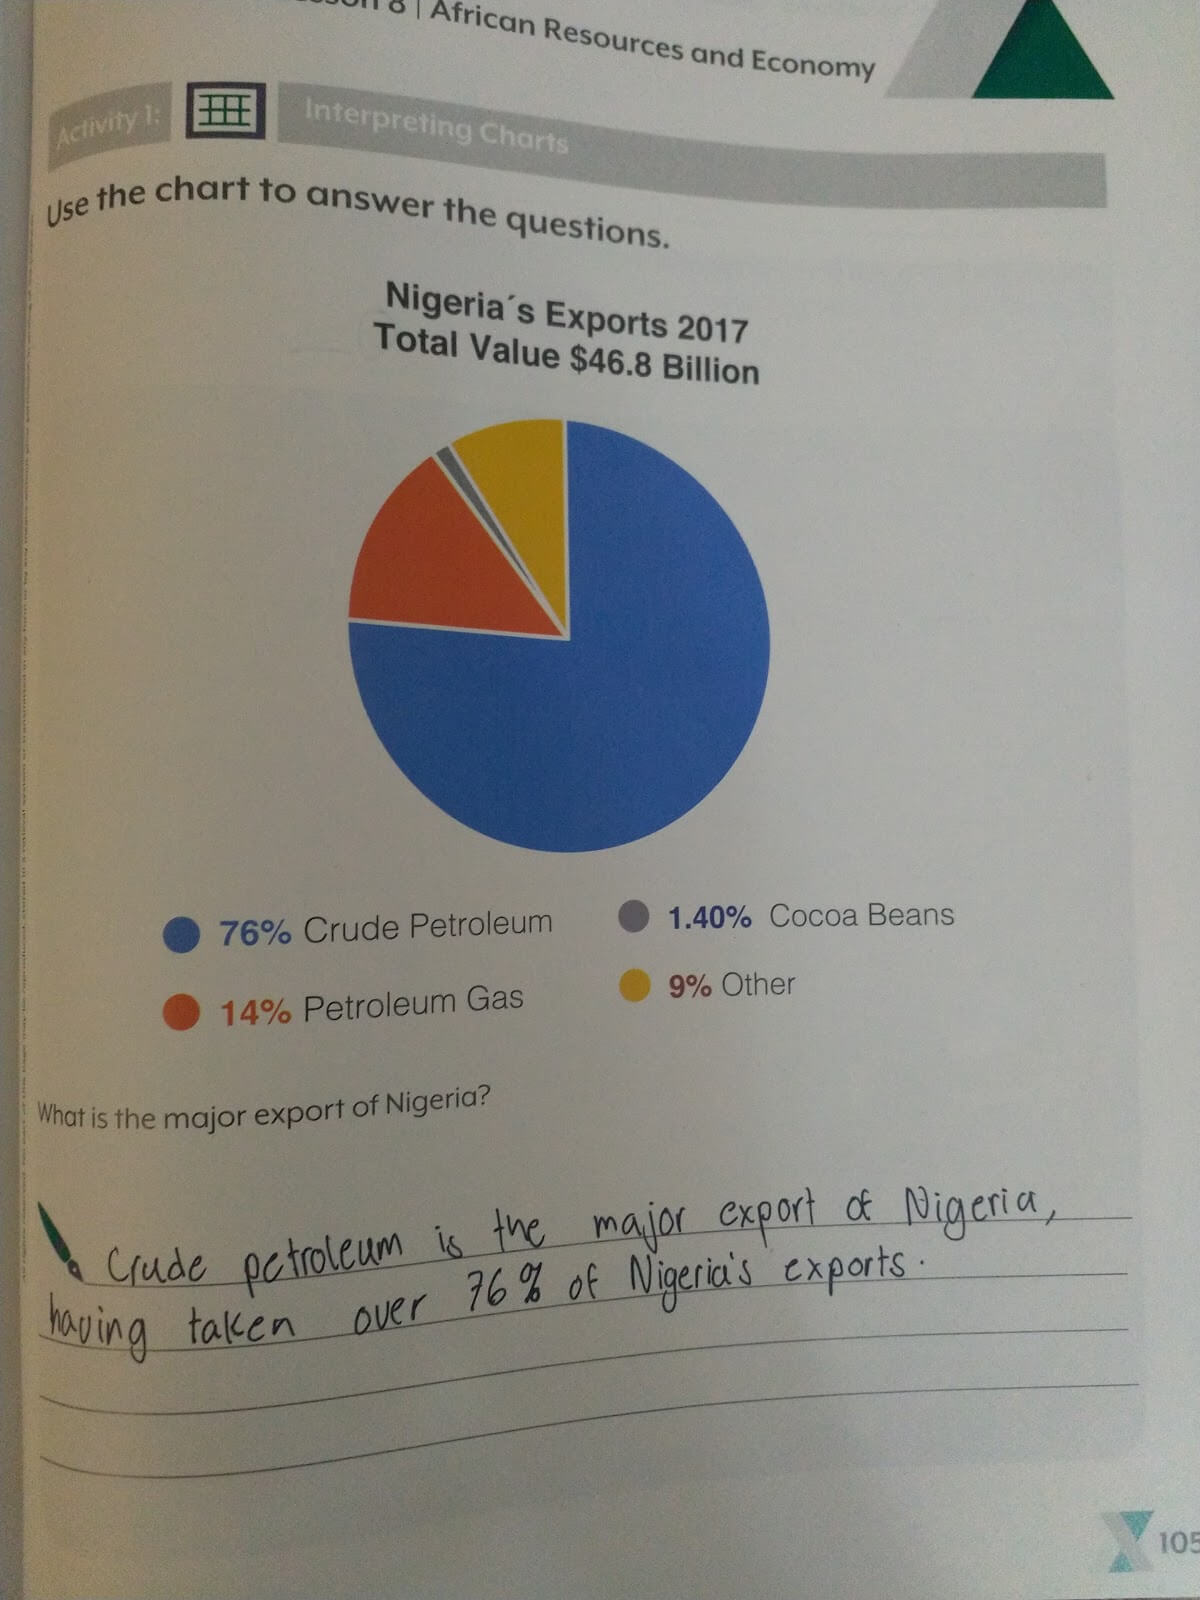 8 | African Resources and Economy
Activity 1:
Interpreting Charts
Use the chart to answer the questions.
Nigeria´s Exports 2017
Total Value $46.8 Billion
76% Crude Petroleum
1.40% Cocoa Beans
14% Petroleum Gas
9% Other
What is the major export of Nigeria?
Crude petroleum is the major export of Nigeria,
having taken over 76% of Nigeria's exports.
105